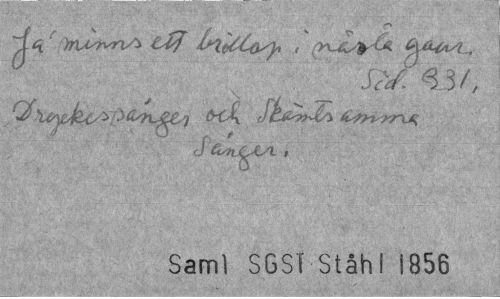 Ja minns ett bröllop i nästa gaur.
Sid. 331.
Dryckessånger och Skämtsamma
Sånger.
Saml SGS1 Ståhl 1856